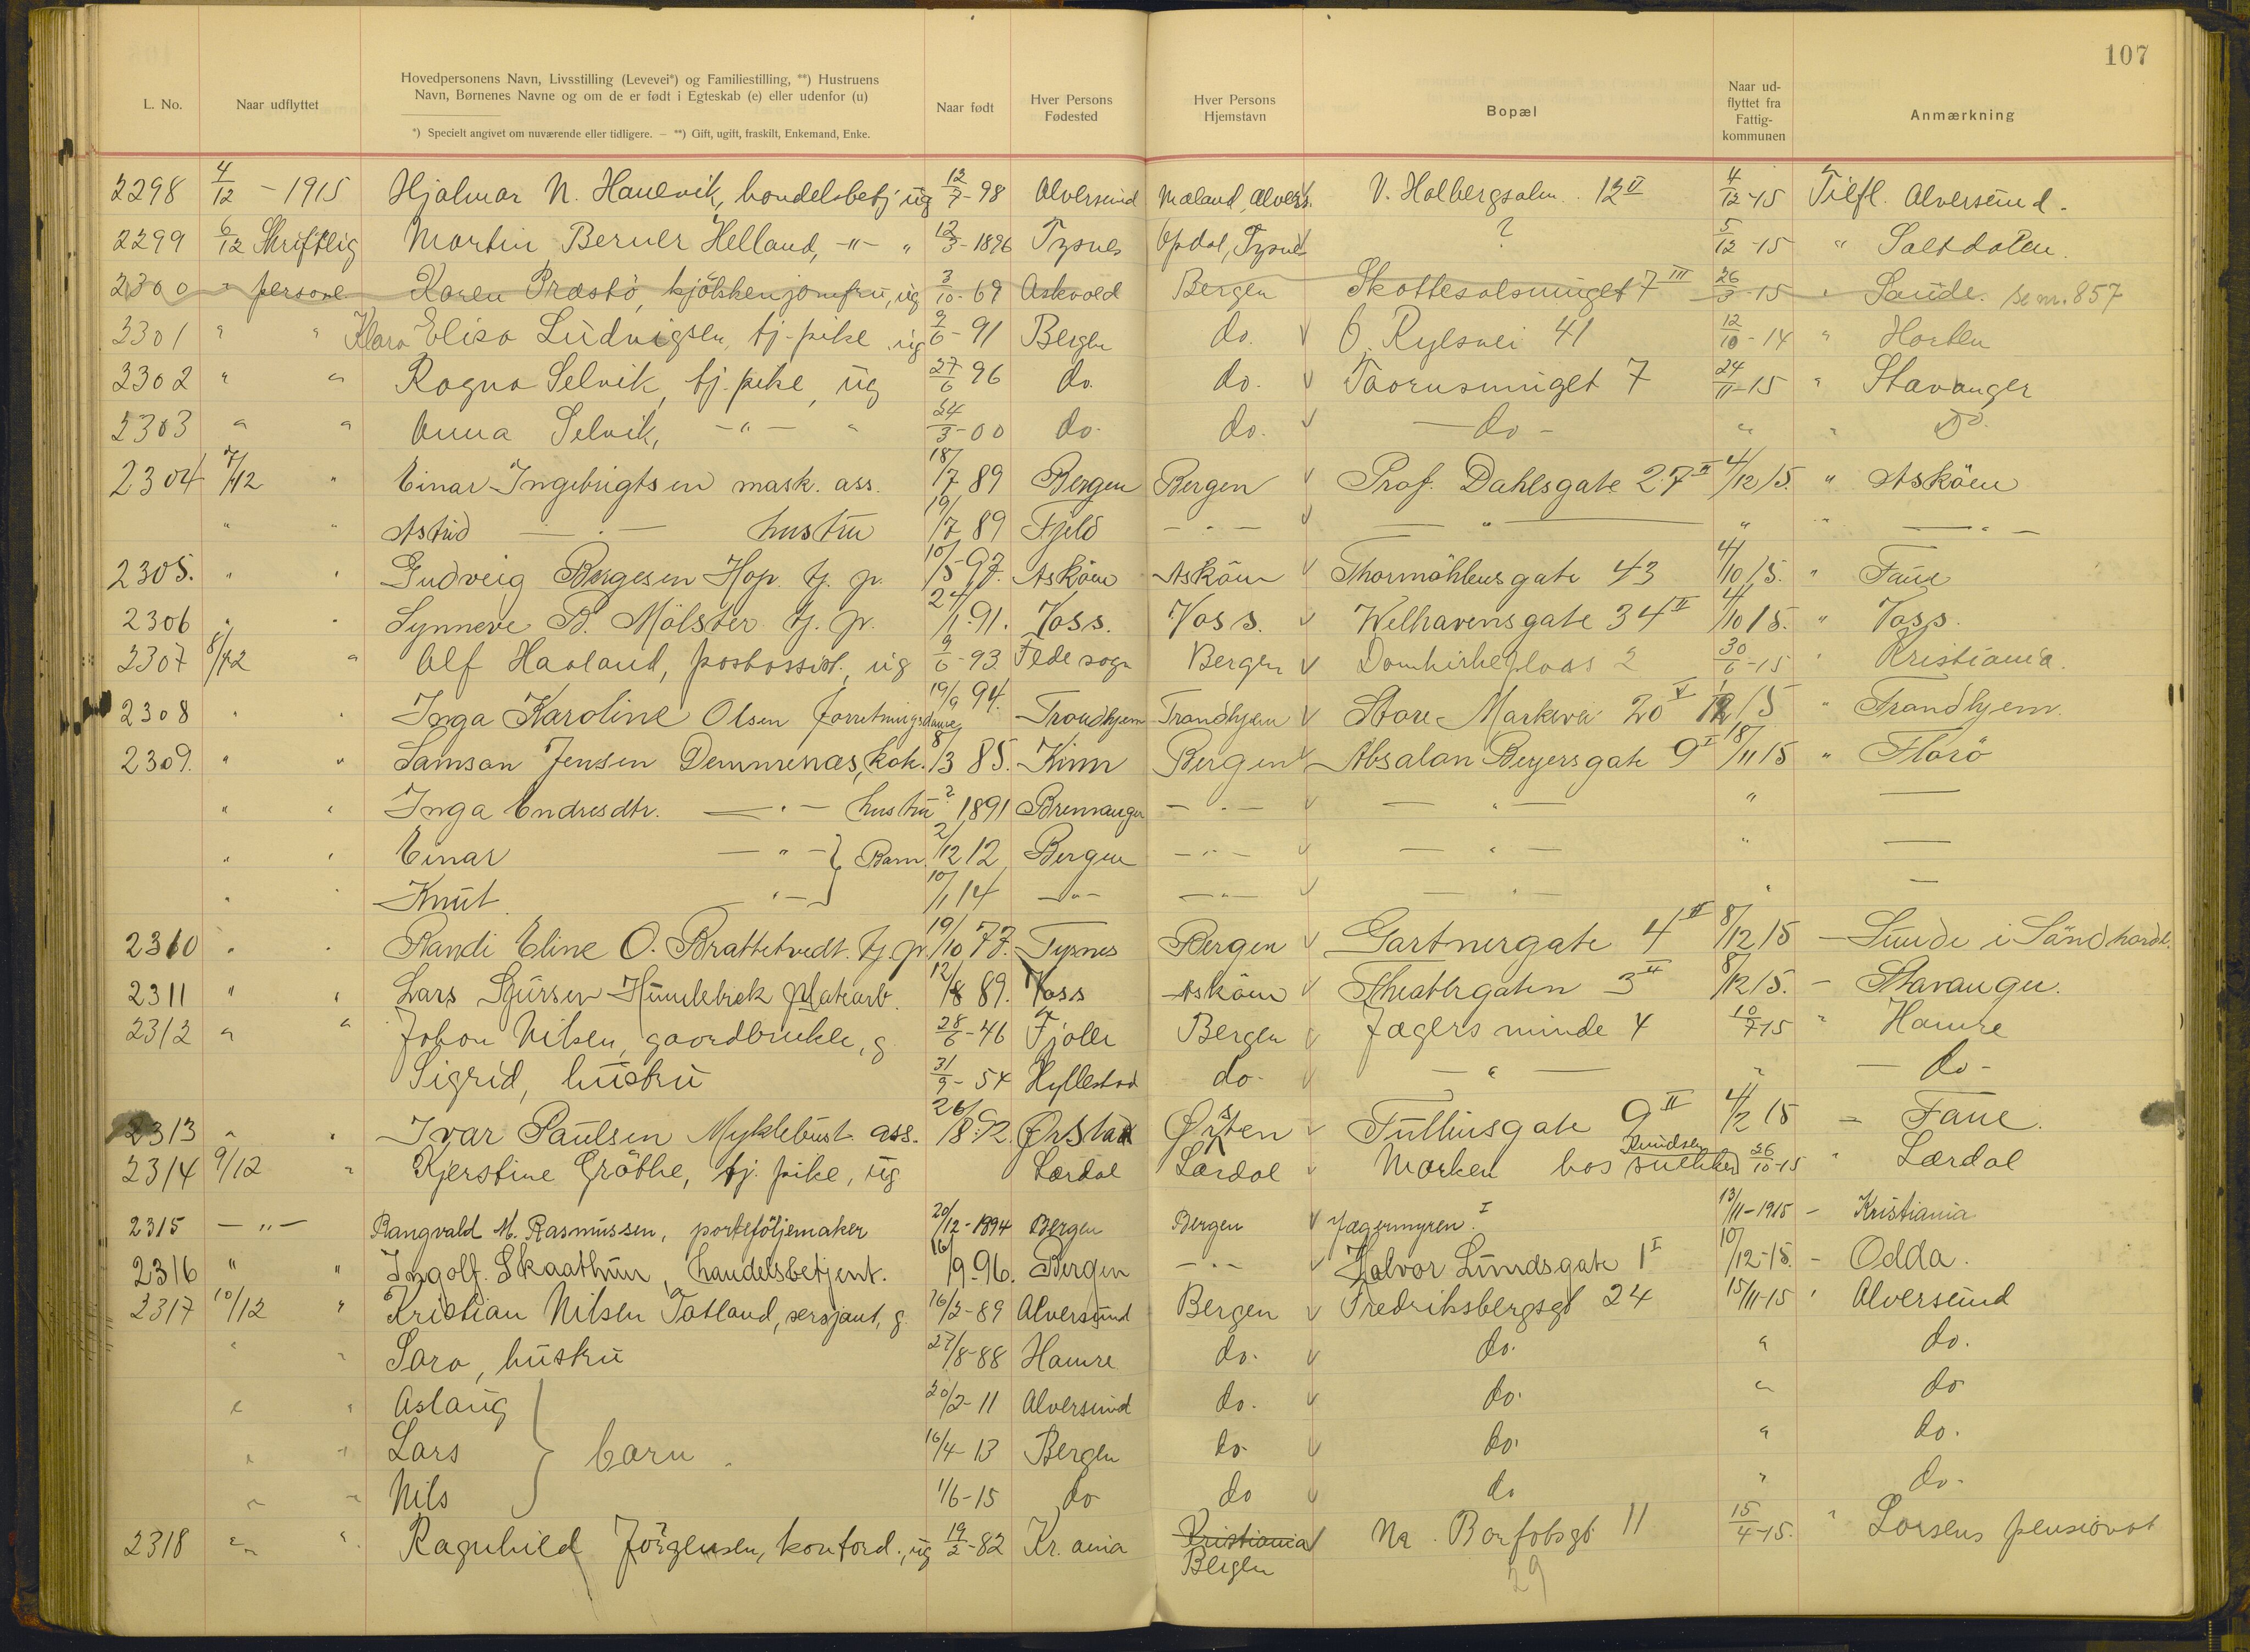 107
L. No.
Naar udflyttet
Hovedpersonens Navn, Livsstilling (Levevei*) og Familiestilling, **) Hustruens
Navn, Børnenes Navne og om de er født i Egteskab (e) eller udenfor (u)
*) Specielt angivet om nuværende eller tidligere. — **) Gift, ugift, fraskilt, Enkemand, Enke.
Naar født
Hver Persons
Fødested
Hver Persons
Hjemstavn
Bopæl
Naar ud-
flyttet fra
Fattig-
kommunen
Anmærkning
2298 4/12 - 1915 Hjalmar N. Hanevik, handelsbetj ug 12/7 - 98 Alversund Mæland, Alvers. V. Holbergsalm. 12 II 4/12-15 Tilfl. Alversund.
2299 6/12 Skriftlig Martin Berner Helland, -"- " 12/3 - 1896 Tysnes Opdal, Tysnes ? 5/12-15 " Saltdalen.
2300 " personl Karen Præstö, kjökkenjomfru, ug 3/10 - 69 Askvold Bergen Skottesalsmuget 7 III 26/3-15 " Sande. se nr. 857
2301 " " Klara Elisa Ludvigsen, tj. pike ug 9/6 - 91 Bergen do. v O. Rylsvei 41 12/10 - 14 " Horten
2302 " " Ragna Selvik, tj. pike, ug 27/6 96 do. do. v Taarnsmuget 7 24/11-15 " Stavanger
2303 " " Anna Selvik, -"- " 24/3 - 00 do. do. v - do - " " Do.
2304 7/12 " Einar Ingebrigtsen mask. ass. 18/7 89 Bergen Bergen v Prof. Dahlsgate 27 II 4/12 15. " Asköen
" " Astrid -"- hustru 19/7 89 Fjeld -"- v -"- " " -"-
2305. " " Gudveig Børgesen Hop. tj. p. 10/5 97. Asköen Asköen v Thormöhlensgate 43 4/10 15. " Fane
2306 " " Synneve B. Mölster tj. p. 24/1 91. Voss. Voss. v Welhavensgate 34 II 4/10 15. " Voss.
2307 8/12 " Alf Haaland, postassist., ug 9/6 - 93 Fede sogn Bergen v Domkirkeplads 2 30/6 - 15 " Kristiania.
2308 " " Inga Karoline Olsen forretningsdame 19/9 94. Trondhjem Trondhjem v Store Markevei 20 V 1/12 15 " Trondhjem
2309. " " Samson Jensen Demmenæs, kok. 8/3 85. Kinn Bergen v Absalon Beyersgate 9 I 18/11 15 " Florö
" " Inga Endresdtr. -"- hustru ? 1891 Bremanger -"- v -"- " —
" " Einar -"- } Barn. 2/12 12 Bergen -"- v -"- " —
" " Knut -"- 10/1 14 -"- -"- v -"- " —
2310 " " Randi Eline O. Brattetvedt. tj. p. 19/10 77. Tysnes Bergen v Gartnergate 4 II 8/12 15 - Sunde i Söndhordl.
2311 " " Lars Sjursen Humlebrek platearb. 12/8 89. Voss Asköen v Theatergaten 3 II 8/12 15. - Stavanger.
2312 " " Johan Nilsen, gaardbruker, g 28/6 - 46 Fjaler Bergen v Jægers minde 4 10/7-15 " Hamre
Sigrid, hustru 31/9 - 54 Hyllestad do. v -"- " - do -
2313 " " Ivar Paulsen Myklebust ass. 26/8 92. Örsta Örsten v Tulliusgate 9 II 4/2 15 - Fane.
2314 9/12 " Kjerstine Gröthe, tj. pike, ug Lærdal Lærdal v Marken hos Knudsen 26/10-15 " Lærdal
2315 -"- Rangvald M. Rasmussen, porteföljemaker 20/12 - 1894 Bergen Bergen v Jægermyren I 13/11-1915 - Kristiania
2316 " " Ingolf. Skaathun, handelsbetjent. 16/9 - 96. Bergen -"- v Halvor Lundsgate 1 I 10/12-15. - Odda.
2317 10/12 " Kristian Nilsen Totland, sersjant, g. 16/2 - 89 Alversund Bergen v Fredriksbergsgt 24 15/11-15 " Alversund
" " Sara, hustru 27/8-88 Hamre do. v do. " do.
" " Aslaug 20/2-11 Alversund do. v do. " do
" " Lars } barn. 16/4-13 Bergen do. v do. " do.
" " Nils 1/6-15 do do v do " do.
2318 " " Ragnhild Jörgensen, kontord., ug 19/2-82 Kr. ania Kristiania v Nr. 11 15/4-15. " Larsens pensionat
Bergen 29